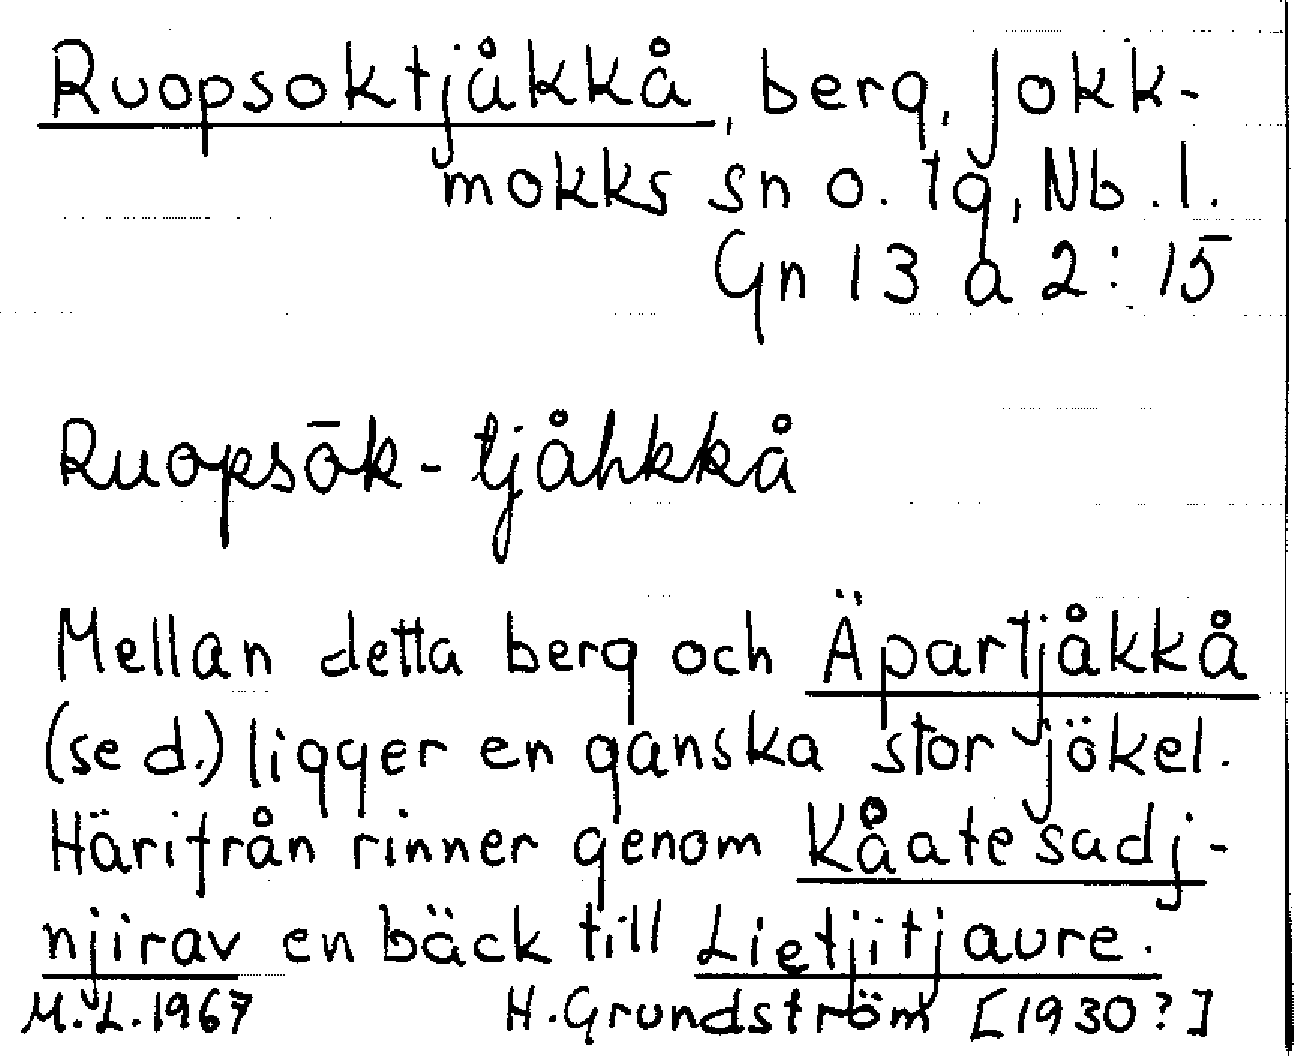 Ruopsoktjåkkå, berg, Jokk-
mokks sn o. tg, Nb. l.
Gn 13 a 2:15
Ruopsōk-tjåhkkå
Mellan detta berg och Äpartjåkkå
(se d.) ligger en ganska stor jökel.
Härifrån rinner genom Kåatesadj-
njirav en bäck till Lietjitjaure.
M.L.1967 H.Grundström [1930?]